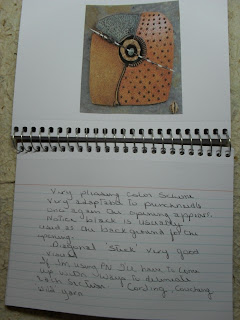 Very pleasing color scheme
Very adapted to punchneedle
once again the opening appears.
Notice black is usually
used as the background for the
opening.
Diagonal "stick" very good
visual
If I'm using PN I'll have to come
up with ways to
both sections Cording, Couching
yarn